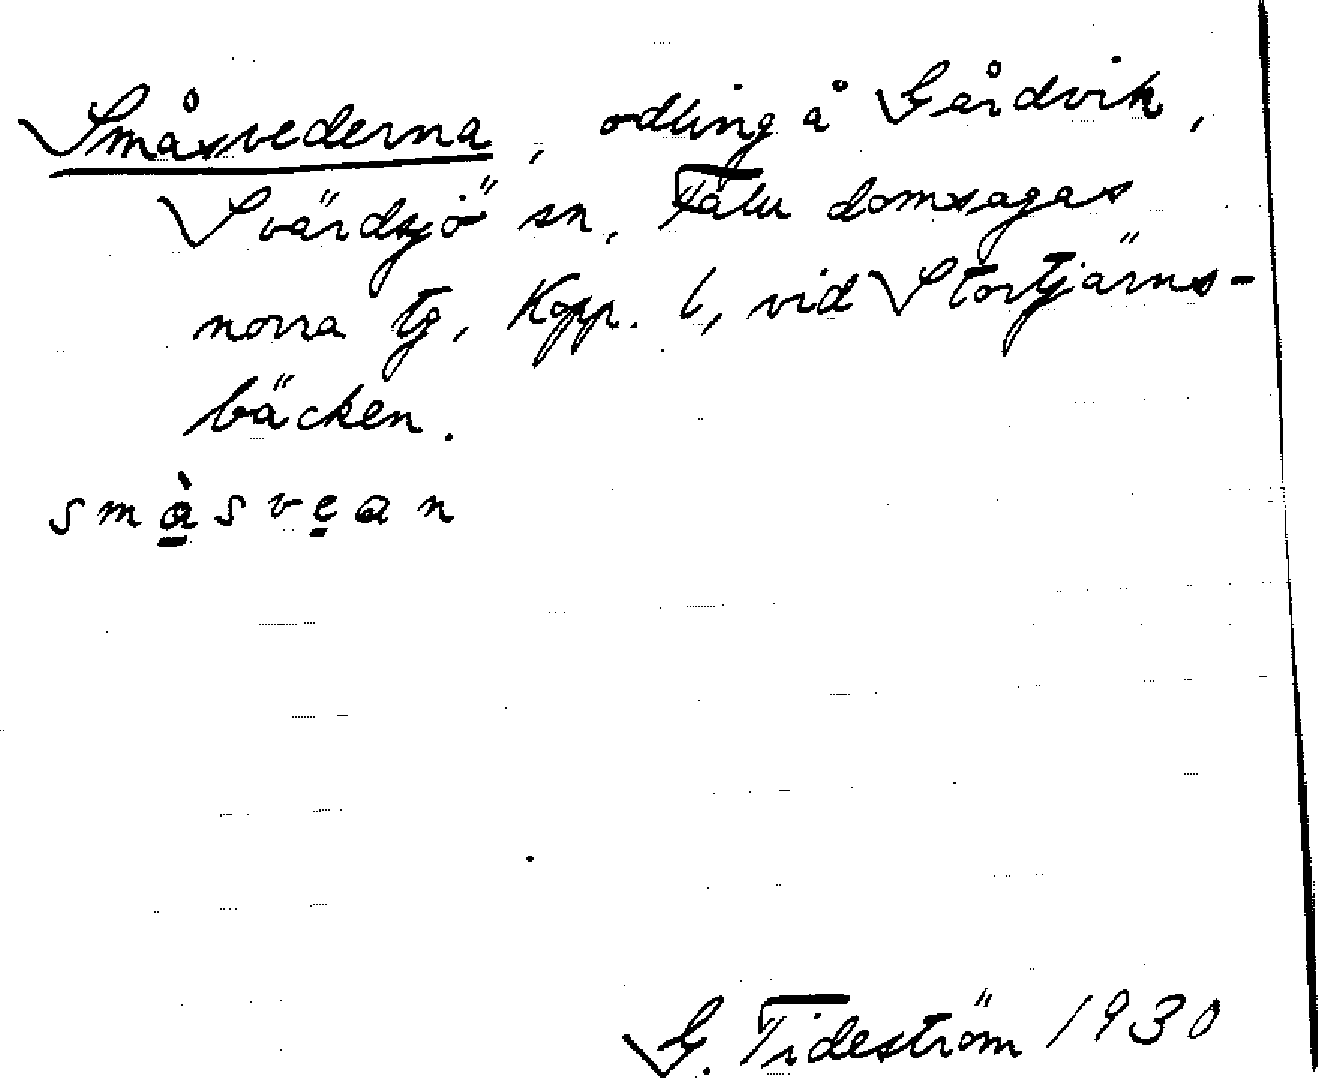 Småsvederna, odling å Gårdvik,
Svärdsjö sn, Falu domsagas
norra tg, Kopp. l, vid Stortjärns-
bäcken.
smàsvean
G. Tideström 1930